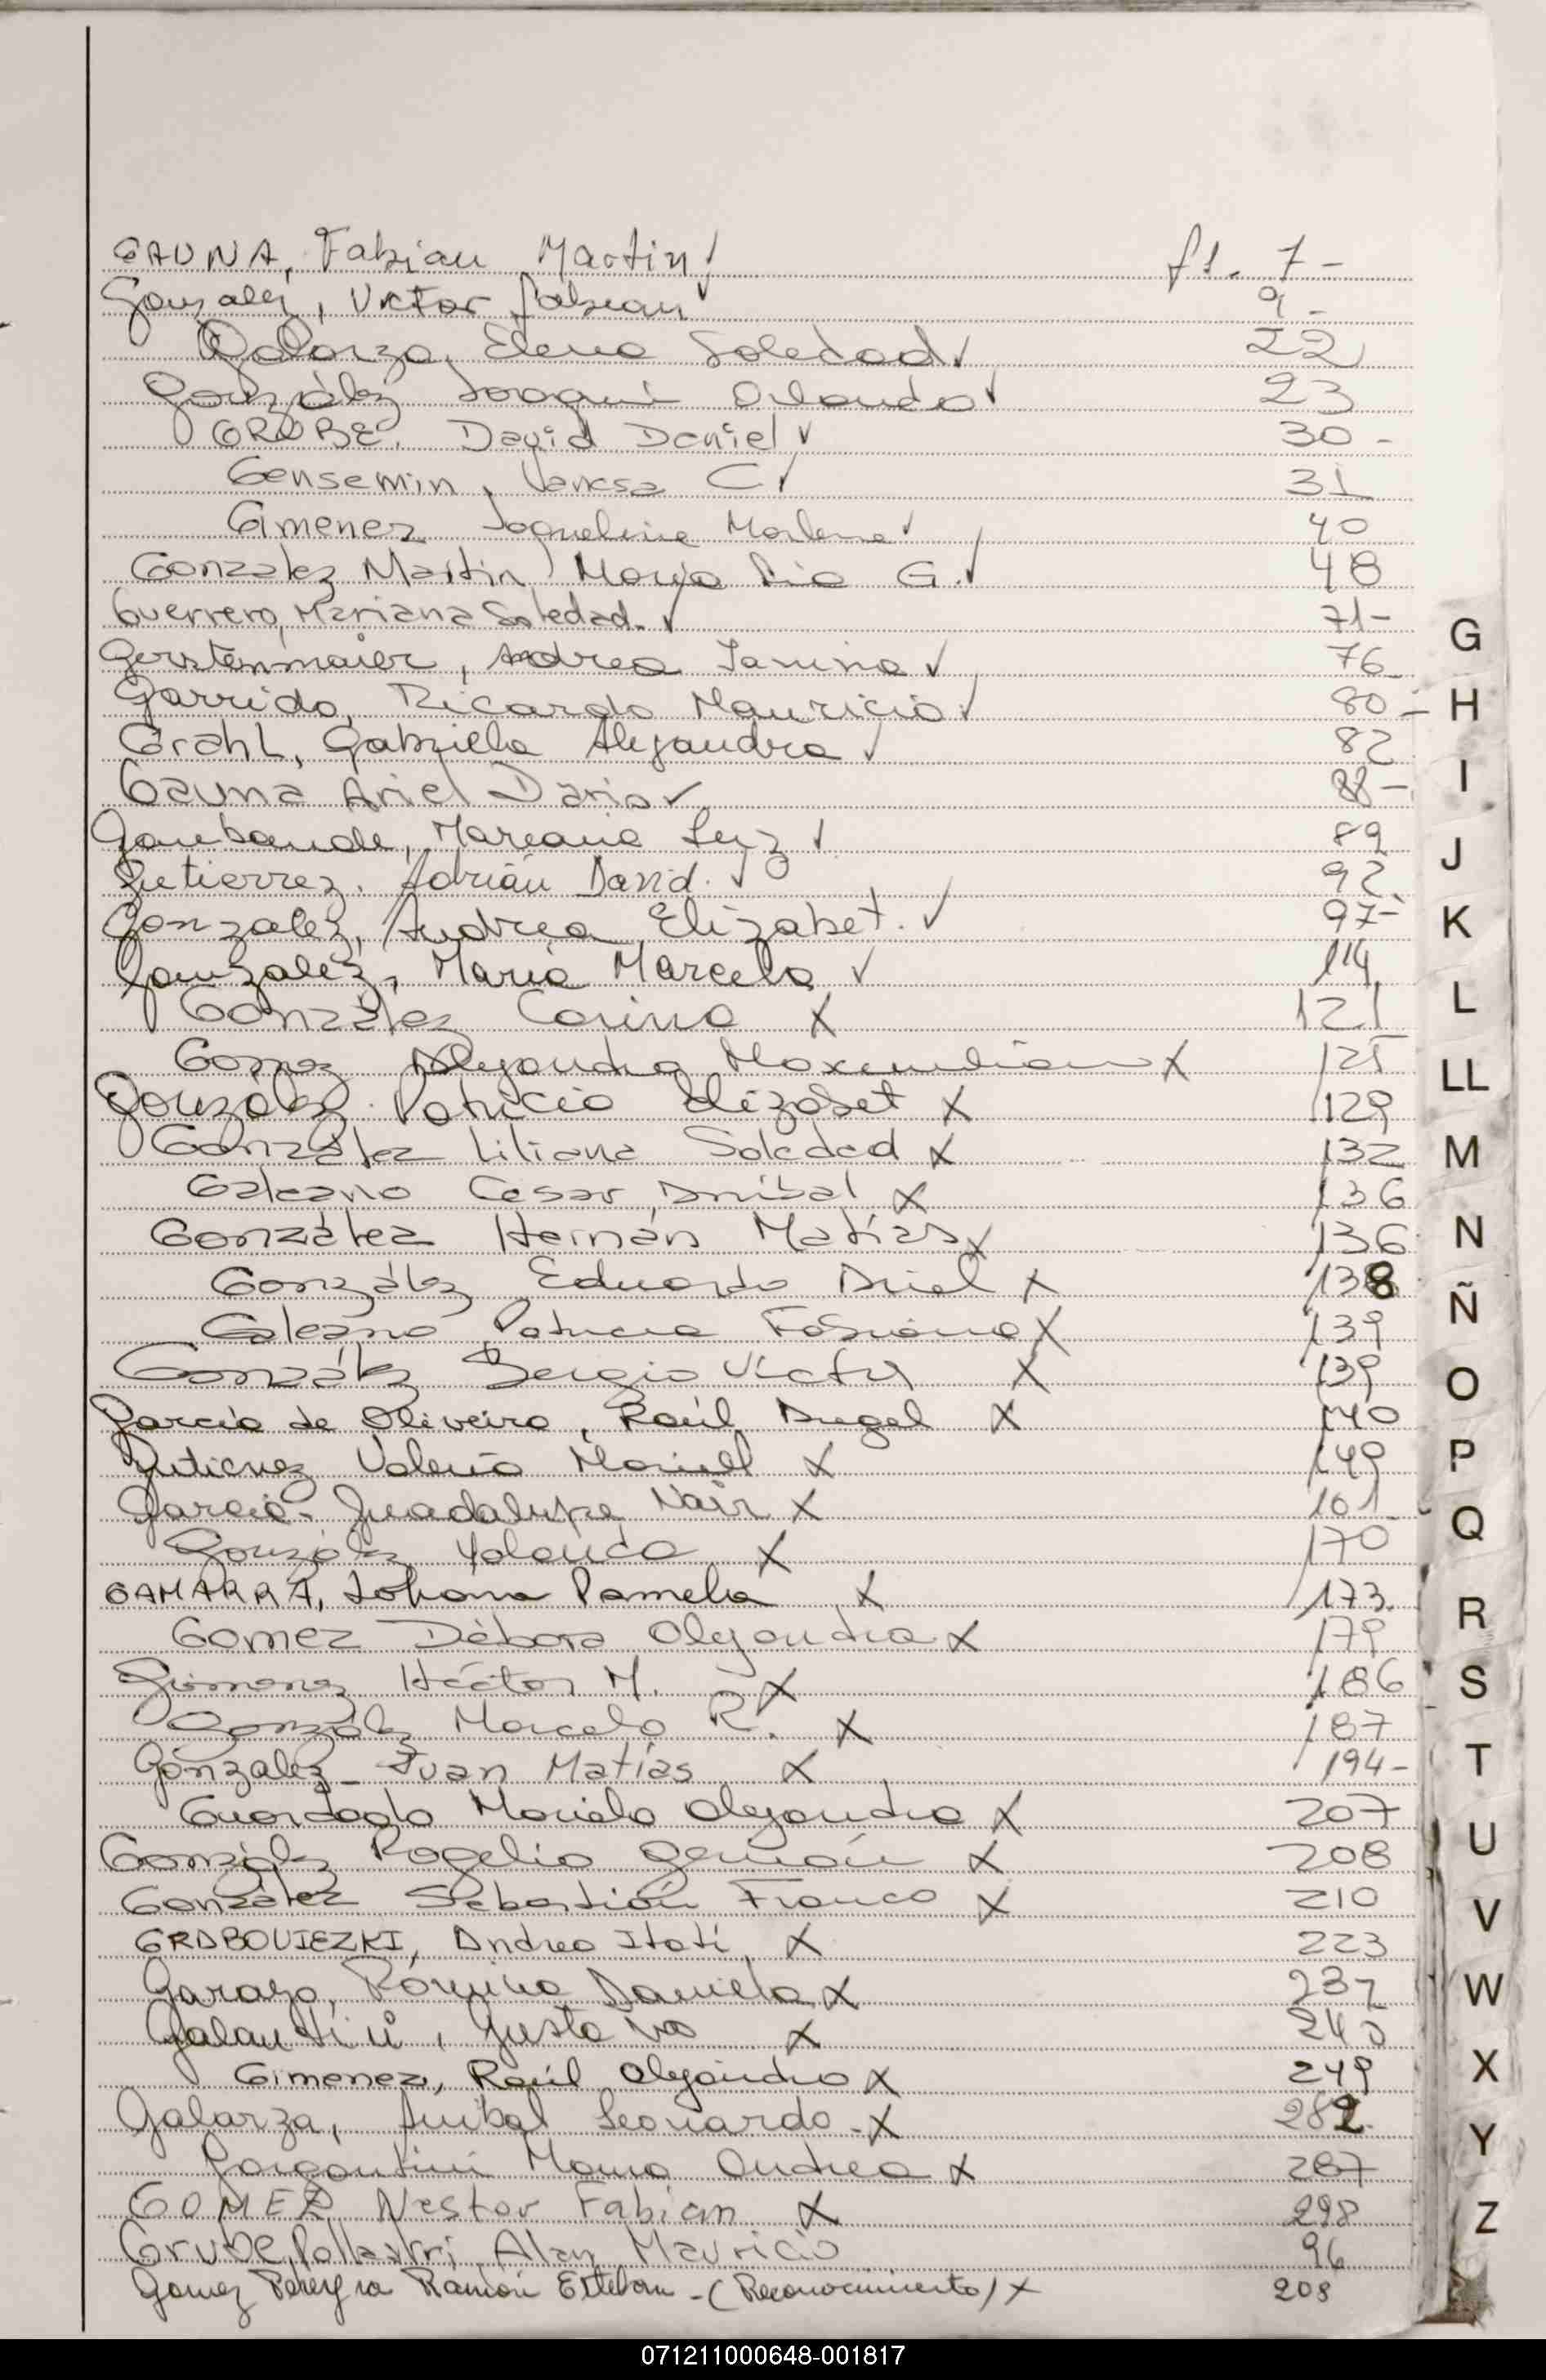 GAUNA, Fabian Martin ✓ fs. 7-
Gonzalez, Victor Fabian ✓ 9-
Galarza, Elena Soledad ✓ 22
González Joaquin Orlando ✓ 23
GRUBE, David Daniel ✓ 30-
Gensemin, Vanesa C ✓ 31
Gimenez Jaqueline Marlene ✓ 40
Gonzalez Martin Maria Pia G. ✓ 48
Guerrero, Mariana Soledad. ✓ 71-
Gerstenmaier, Andrea Janina ✓ 76
Garrido, Ricardo Mauricio ✓ 80-
Grahl, Gabriela Alejandra ✓ 82
Gauna Ariel Dario ✓ 88-
Mariana Luz ✓ 89
Gutierrez, Adrián David. ✓ 92
Gonzalez, Andrea Elizabet. ✓ 97-
Gonzalez, Maria Marcela ✓ 114
González Corina X 121
Gomez Alejandro Maximiliano X 125
González Patricia Elizabet X 129
González Liliana Soledad X 132
Galeano Cesar Anibal X 136
González Hernán Matías X 136
González Eduardo Ariel X 138
Galeano Patricia Fabiana X 139
González Sergio Victor X 139
Garcia de Oliveira, Raúl Angel X 140
Gutierrez Valeria Mariell X 149
Garcia- Guadalupe Nair X 161
González Yolanda X 170
GAMARRA, Johana Pamela X 173
Gomez Débora Alejandra X 179
Gimenez Héctor M. X 186
González Marcelo R. X 187
Gonzalez Juan Matías X 194-
Guardado Mariela Alejandra X 207
González Rogelio Germán X 208
González Sebastián Franco X 210
GRABOVIEZKI, Andrea Itatí X 223
Garazo, Romina Daniela X 237
Galantini, Gustavo X 240
Gimenez, Raúl Alejandro X 249
Galarza, Anibal Leonardo. X 282
Gargantini Maria Andrea X 287
GOMEZ Nestor Fabian X 298
Grube Pollastri, Alan Mauricio 96
Gomez Pereyra Ramón Esteban -(Reconocimiento) X 208
G
H
I
J
K
L
LL
M
N
Ñ
O
P
Q
R
S
T
U
V
W
X
Y
Z
071211000648-001817